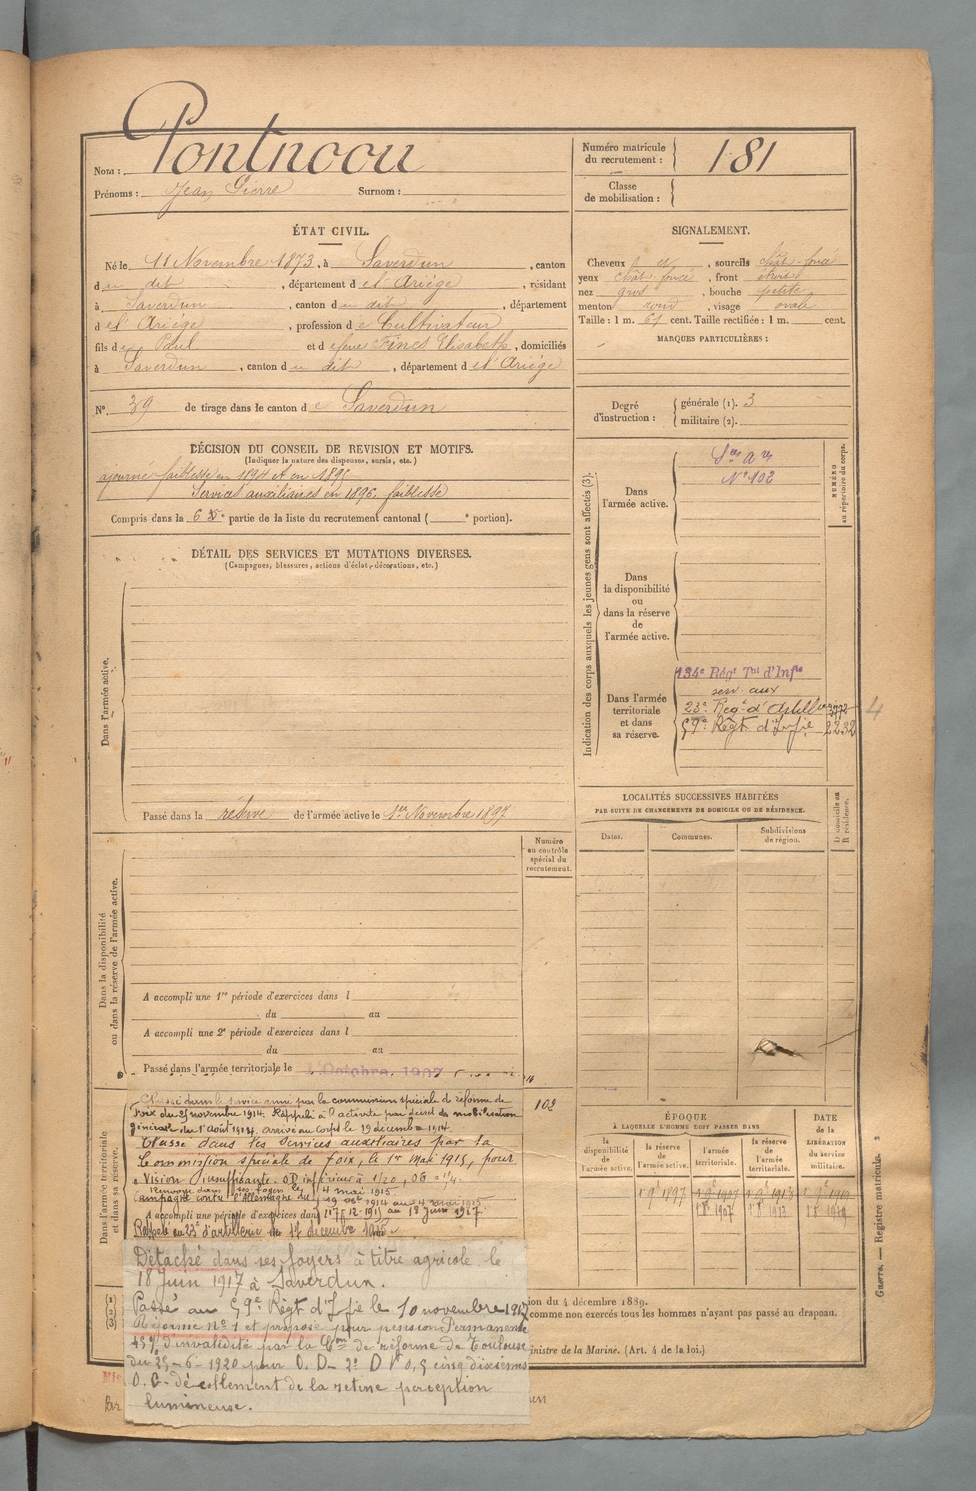 Nom : Pontnoou
Prénoms : Jean Pierre Surnom :
Numéro matricule du recrutement : 181
Classe de mobilisation :
ÉTAT CIVIL.
Né le 11 Novembre 1873, à Saverdun, canton
du dit, département de l'Ariège, résidant
à Saverdun, canton du dit, département
de l'Ariège, profession de Cultivateur
fils de Paul et de feue Fincs Elisabeth, domiciliés
à Saverdun, canton du dit, département de l'Ariège
N°. 39 de tirage dans le canton de Saverdun
SIGNALEMENT.
Cheveux et, sourcils chât. foncé
yeux chât. foncé, front étroit
nez gros, bouche petite
menton rond, visage ovale
Taille : 1 m. 61 cent. Taille rectifiée : 1 m. cent.
MARQUES PARTICULIÈRES :
Degré d'instruction : générale (1). 3
militaire (2).
DÉCISION DU CONSEIL DE REVISION ET MOTIFS.
(Indiquer la nature des dispenses, sursis, etc.)
ajourné faiblesse en 1894 et en 1895
Services auxiliaires en 1896. faiblesse
Compris dans la 6e partie de la liste du recrutement cantonal ( e portion).
DÉTAIL DES SERVICES ET MUTATIONS DIVERSES.
(Campagnes, blessures, actions d'éclat, décorations, etc.)
Dans l'armée active.
Passé dans la réserve de l'armée active le 1er Novembre 1897
Indication des corps auxquels les jeunes gens sont affectés (3).
NUMÉRO au répertoire du corps.
Dans l'armée active.
N° 102
Dans la disponibilité ou dans la réserve de l'armée active.
Dans l'armée territoriale et dans sa réserve.
134e Régt Tal d'Infie
serv. aux
23e Régt d'Artillie
59e Régt d'Infie 2232
4
LOCALITÉS SUCCESSIVES HABITÉES
PAR SUITE DE CHANGEMENTS DE DOMICILE OU DE RÉSIDENCE.
Dates. Communes. Subdivisions de région. D domicile ou R résidence.
Numéro au contrôle spécial du recrutement.
Dans la disponibilité ou dans la réserve de l'armée active.
A accompli une 1re période d'exercices dans l
du au
A accompli une 2e période d'exercices dans l
du au
Passé dans l'armée territoriale le 1 Octobre 1907
Dans l'armée territoriale et dans sa réserve.
102
Classé dans le service armé par la commission spéciale de réforme de
Foix du 25 novembre 1914. Rappelé à l'activité par décret de mobilisation
générale du 1er Août 1914. arrivé au corps le 19 décembre 1914.
Classé dans les services auxiliaires par la
Commission spéciale de Foix, le 1er Mai 1915, pour
Vision insuffisante. OD inférieur à 1/20, OG = 1/4.
Renvoyé dans ses foyers le 4 mai 1915
Campagne contre l'Allemagne du 19 1914 au 4 mai 1915
A accompli une période d'exercices dans au 18 Juin 1917
Rappelé au 23e d'artillerie le 17 décembre
Détaché dans ses foyers à titre agricole le
18 Juin 1917 à Saverdun.
Passé au 59e Régt d'Infie le 10 novembre 1917
Réformé n° 1 et proposé pour pension Permanente
45% d'invalidité par la Con de réforme de Toulouse
du 25-6-1920 pour O. D- 2° D V 0,5 cinq dixièmes
O. G- décollement de la rétine perception
lumineuse.
ÉPOQUE
À LAQUELLE L'HOMME DOIT PASSER DANS
la disponibilité de l'armée active. la réserve de l'armée active. l'armée territoriale. la réserve de l'armée territoriale.
DATE de la LIBÉRATION du service militaire.
1 9bre 1897
ion du 4 décembre 1889.
comme non exercés tous les hommes n'ayant pas passé au drapeau.
inistre de la Marine. (Art. 4 de la loi.)
Guerre. — Registre matricule. 2